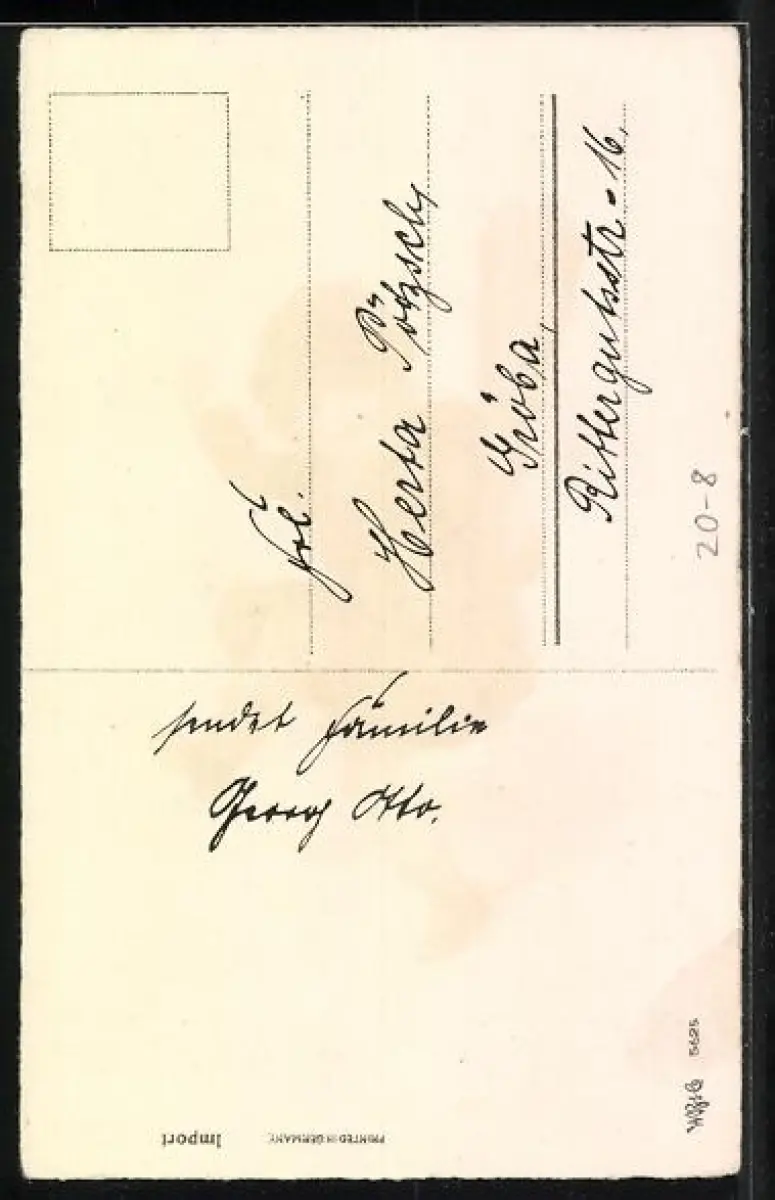 sendet Familie
Georg Otto.
Frl.
Herta Pötzsch,
Gröba,
Rittergutsstr. 16.
20-8
5625
PRINTED IN GERMANY
Import